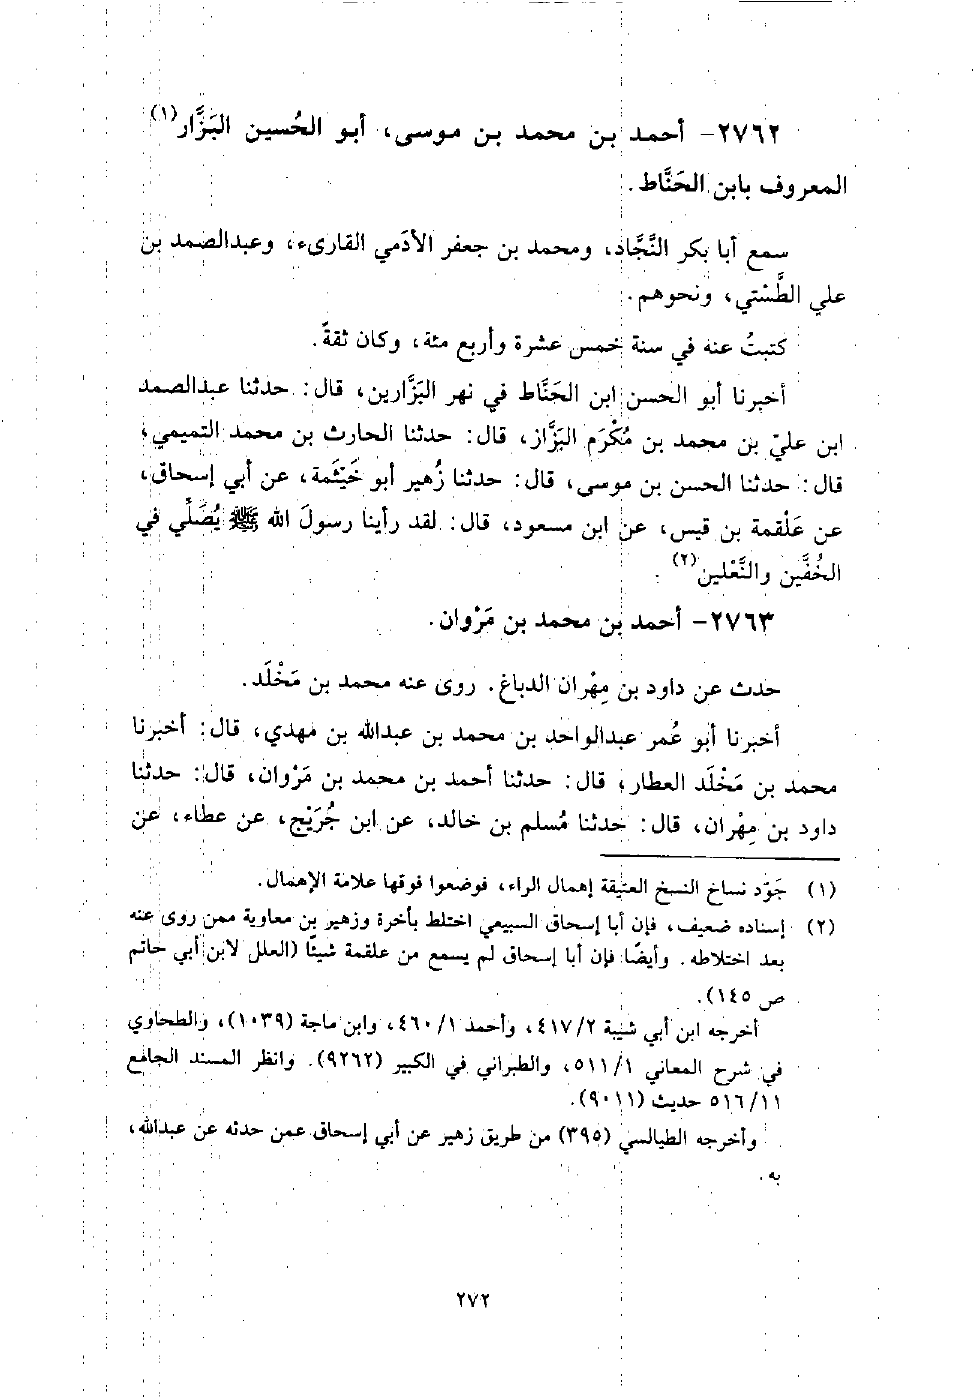 ٢٧٦٢- أحمد بن محمد بن موسى، أبو الحُسين البَزَّار(١)
المعروف بابن الحَنَّاط.
سمع أبا بكر النَّجَّاد، ومحمد بن جعفر الأدَمي القارىء، وعبدالصمد بن
علي الطَّسْتي، ونحوهم.
كتبتُ عنه في سنة خمس عشرة وأربع مئة، وكان ثقةً.
أخبرنا أبو الحسن ابن الحَنَّاط في نهر البَزَّارين، قال: حدثنا عبدالصمد
ابن عليّ بن محمد بن مُكْرَم البَزَّاز، قال: حدثنا الحارث بن محمد التميمي،
قال: حدثنا الحسن بن موسى، قال: حدثنا زُهير أبو خَيْثَمة، عن أبي إسحاق،
عن عَلْقمة بن قيس، عن ابن مسعود، قال: لقد رأينا رسولَ الله ﷺ يُصَلِّي في
الخُفَّين والنَّعْلين(٢).
٢٧٦٣- أحمد بن محمد بن مَرْوان.
حدث عن داود بن مِهْران الدباغ. روى عنه محمد بن مَخْلَد.
أخبرنا أبو عُمر عبدالواحد بن محمد بن عبدالله بن مهدي، قال: أخبرنا
محمد بن مَخْلَد العطار، قال: حدثنا أحمد بن محمد بن مَرْوان، قال: حدثنا
داود بن مِهْران، قال: حدثنا مُسلم بن خالد، عن ابن جُرَيْج، عن عطاء، عن
(١) جَوّد نساخ النسخ العتيقة إهمال الراء، فوضعوا فوقها علامة الإهمال.
(٢) إسناده ضعيف، فإن أبا إسحاق السبيعي اختلط بأخرة وزهير بن معاوية ممن روى عنه
بعد اختلاطه. وأيضًا فإن أبا إسحاق لم يسمع من علقمة شيئًا (العلل لابن أبي حاتم
ص ١٤٥).
أخرجه ابن أبي شيبة ٢/ ٤١٧، وأحمد ١/ ٤٦٠، وابن ماجة (١٠٣٩)، والطحاوي
في شرح المعاني ١/ ٥١١، والطبراني في الكبير (٩٢٦٢). وانظر المسند الجامع
١١/ ٥١٦ حديث (٩٠١١).
وأخرجه الطيالسي (٣٩٥) من طريق زهير عن أبي إسحاق عمن حدثه عن عبدالله،
به.
٢٧٢